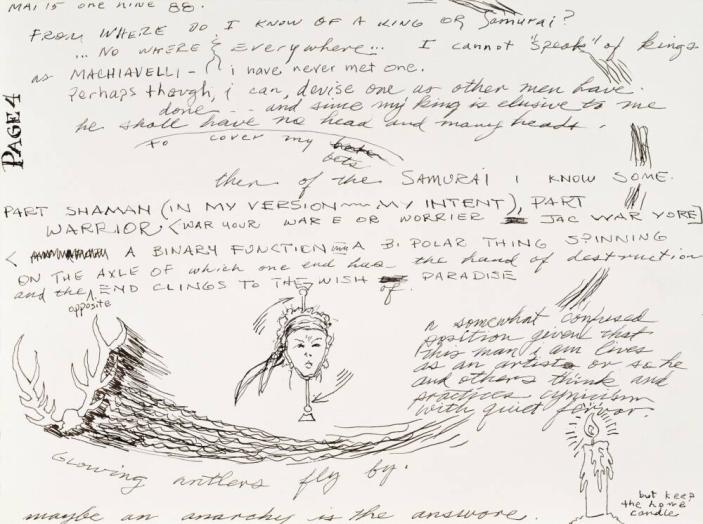 MAI 15 one NINE 88.
FROM WHERE DO I KNOW OF A KING OR Samurai?
... NO WHERE & EVERYwhere... I cannot "speak" of kings
as MACHIAVELLI - i have never met one.
Perhaps though, i can, devise one as other men have
done -- and since my king is elusive to me
he shall have no head and many heads.
to cover my
bets
then of the SAMURAI I KNOW SOME.
PART SHAMAN (IN MY VERSION — MY INTENT), PART
WARRIOR, < WAR YOUR WAR E OR WORRIER JAC WAR YORE]
< A BINARY FUNCTION A BI POLAR THING SPINNING
ON THE AXLE OF which one end has the hand of destruction
and the opposite END CLINGS TO THE WISH of PARADISE
a somewhat confused
position given that
this man i am lives
as an artist or so he
and others think and
practices cynicism
with quiet fervor.
Glowing antlers fly by.
but keep
the home
candle
maybe an anarchy is the answore.
PAGE 4